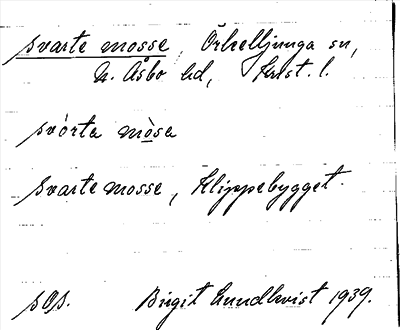 svarte mosse, Örkelljunga sn,
N. Åsbo hd, Krist. l.
svórta mòsa
svarte mosse, Klippebygget.
sOs. Birgit Lundkvist 1939.